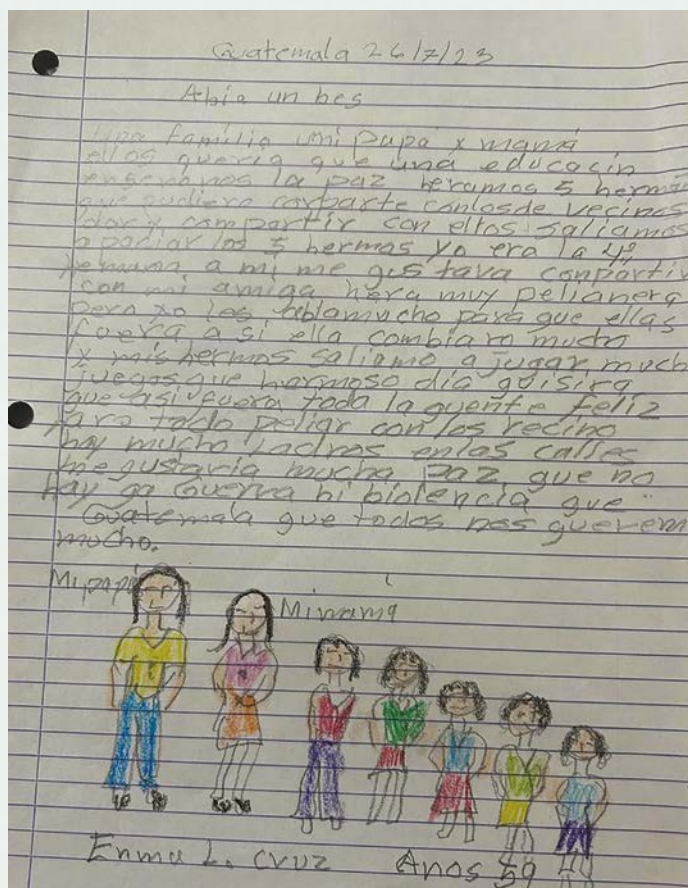 Guatemala 26/7/23
Abia un bes
una família mi papá x mamá
ellos queria que una educacín
enseñarnos la paz heramos 5 herma
que pudiera comparte conlosde vecinos
dar y compartir con ellos saliamos
a paciar los 5 hermas yo era la 4º
hermana, a mi me gustava conpartir
con mi amiga hera muy pelianera
pero yo les ablamucho para que ellas
fuera a si ella combiaro mucto
x mis hermos saliamo a jugar, much
juegos que hermoso día quisira
que asi fuera toda la guente feliz
paro todo peliar con los vecino
hay mucho ladros enlas calles
me gustaria mucha paz que no
hay ga Guerra ni biolencia que
Guatemala que todos nos querem
mucho.
Mi papá Mi mama
Enma L. cruz Anos 59